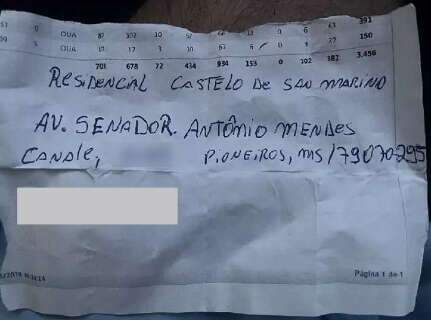 QUA 87 302 10 391
QUA 17 3 10 67 6 0 4 27 150
701 678 72 434 934 153 0 102 382 3.456
RESIDENCIAL CASTELO DE SAN MARINO
AV. SENADOR. ANTÔNIO MENDES
CANALE, PIONEIROS, MS/79070-295
Página 1 de 1